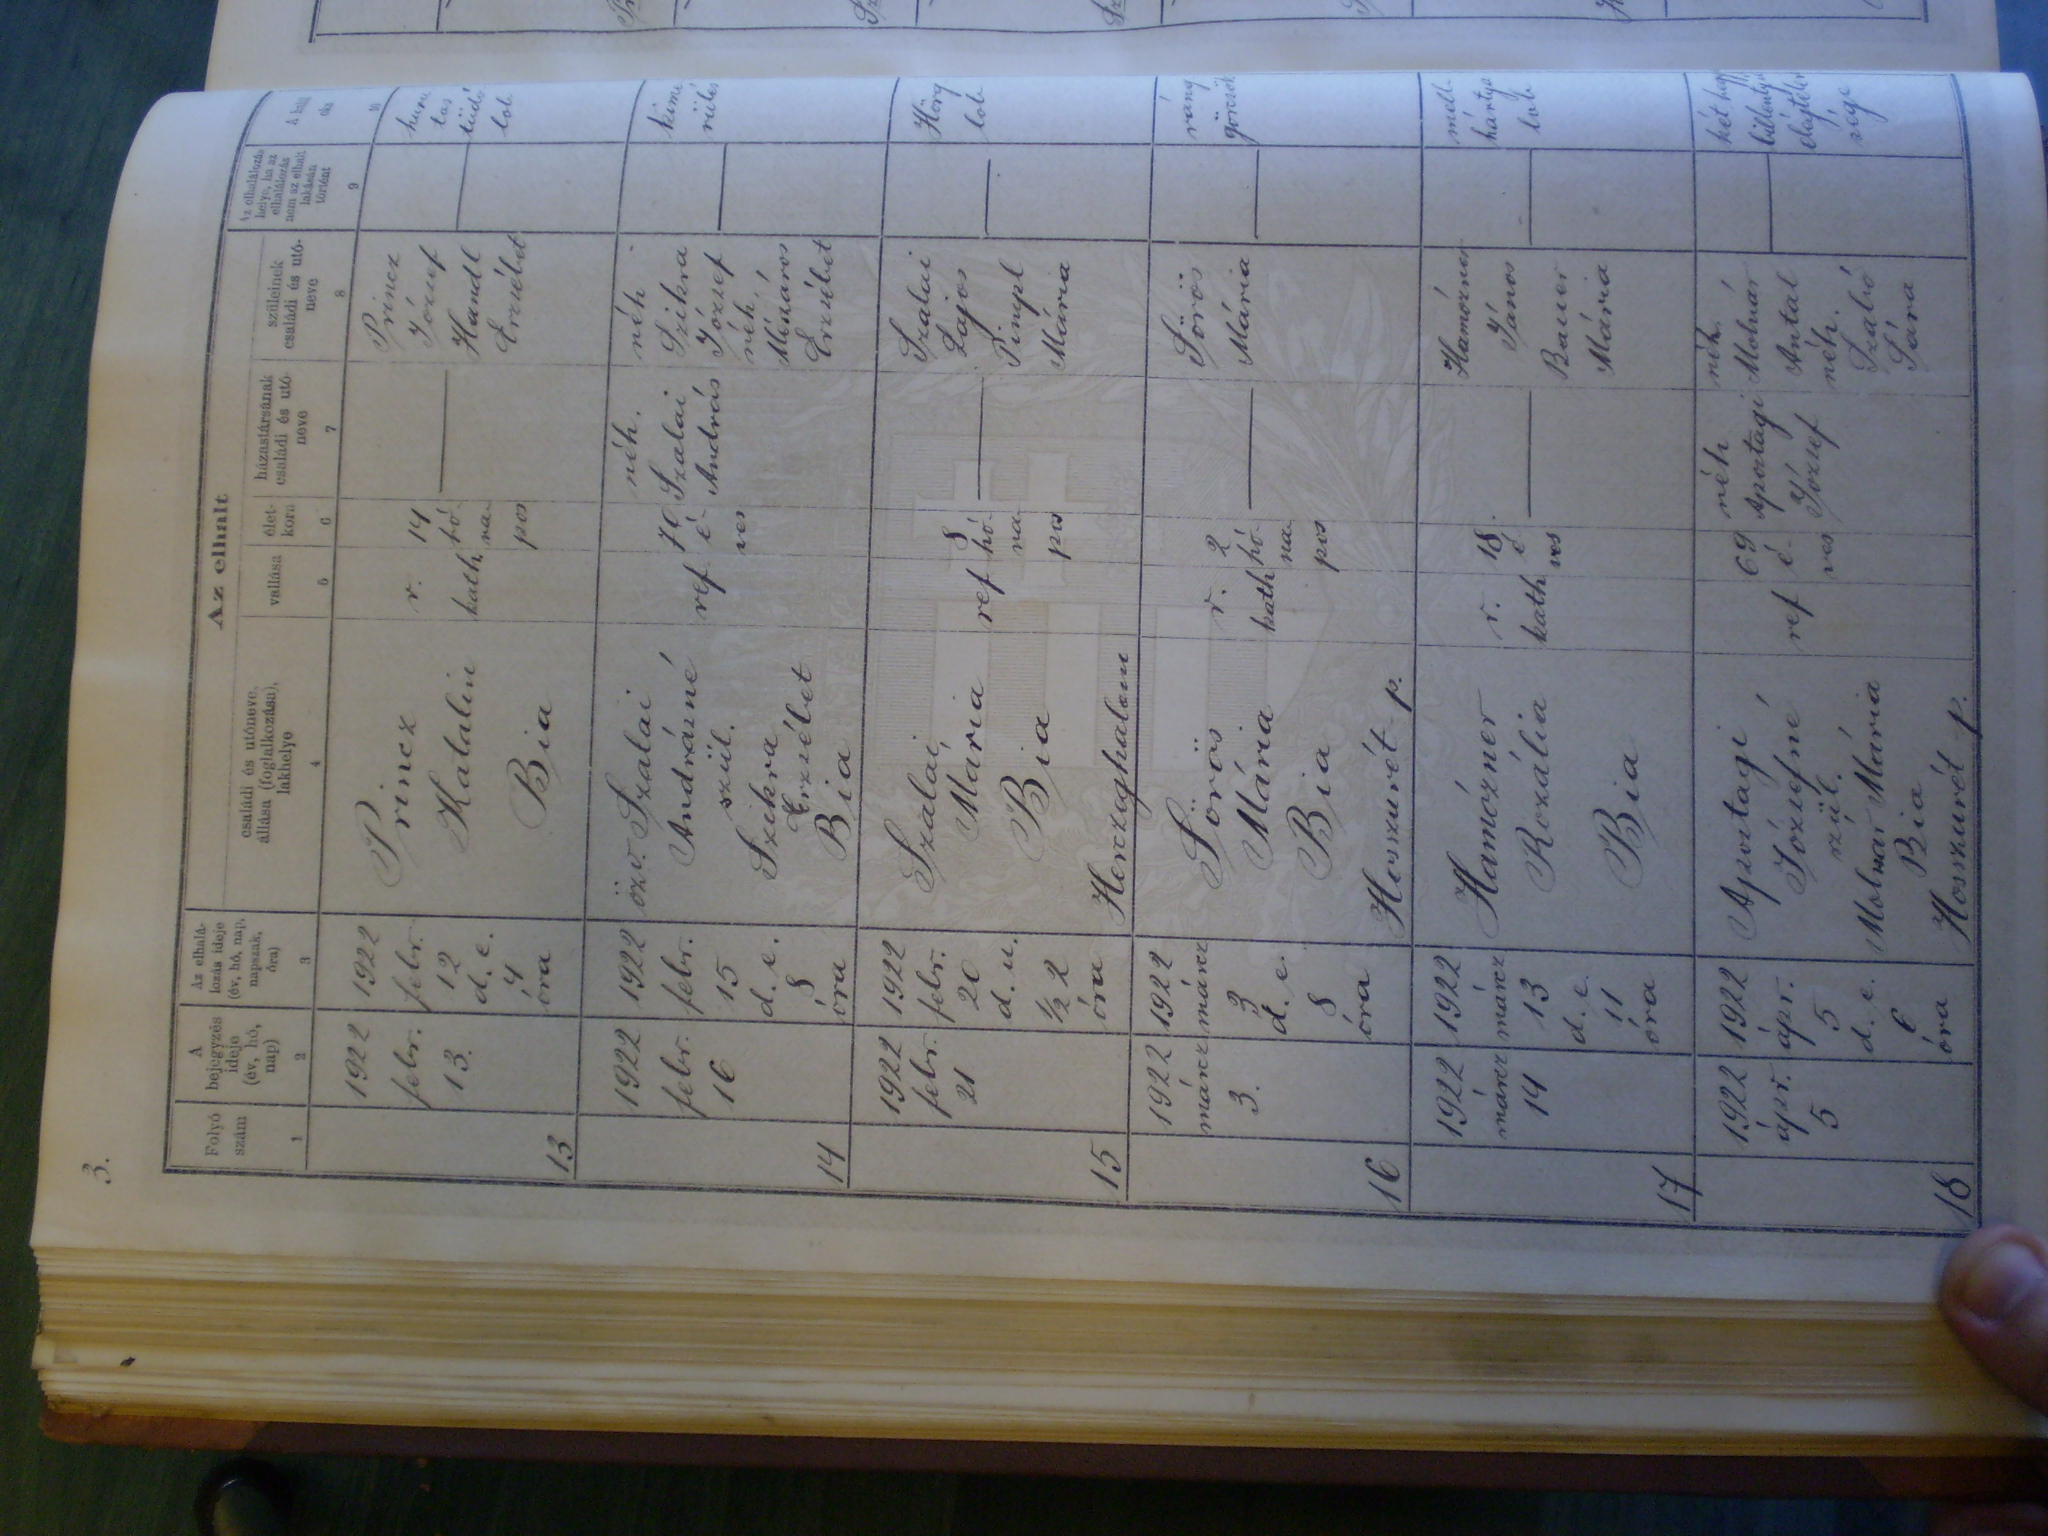 3.
Az elhalt
Folyó
szám
A
bejegyzés
ideje
(év, hó,
nap)
Az elhalá-
lozás ideje
(év, hó, nap,
napszak,
óra)
családi és utóneve,
állása (foglalkozása),
lakhelye
vallása
élet-
kora
házastársának
családi és utó-
neve
szüleinek
családi és utó-
neve
Az elhalálozás
helye, ha az
elhalálozás
nem az elhalt
lakásán
történt
1
2
3
4
5
6
7
8
9
10
13
1922
febr.
13.
1922
febr.
12
d. e.
4
óra
Princz
Katalin
Bia
r.
kath.
14
hó-
na-
pos
Princz
József
Handl
Erzsébet
tüdő
lob
14
1922
febr.
16
1922
febr.
15
d. e.
8
óra
özv. Szalai
Andrásné
szül.
Szikra
Erzsébet
Bia
ref
70
é-
ves
néh.
Szalai
András
néh.
Szikra
József
néh.
Mészáros
Erzsébet
15
1922
febr.
21
1922
febr.
20
d. u.
1/2 2
óra
Szalai
Mária
Bia
Herczeghalom
ref
8
hó-
na-
pos
Szalai
Lajos
Pinzpl
Mária
Hörg
lob
16
1922
márcz
3.
1922
márcz
3
d. e.
8
óra
Sörös
Mária
Bia
Hosszurét p.
r.
kath
2
hó-
na
pos
Sörös
Mária
ráng
görcsök
17
1922
márcz
14
1922
márcz
13
d. e.
11
óra
Hamózner
Rozália
Bia
r.
kath
18.
é-
ves
Hamózner
János
Bauer
Mária
mell-
hártya
lob
18
1922
ápr.
5
1922
ápr.
5
d. e.
6
óra
Apostagi
Józsefné
szül.
Molnár Mária
Bia
Hosszurét p.
ref
69
é-
ves
néh
Apostagi
József
néh.
Molnár
Antal
néh.
Szabó
Sára